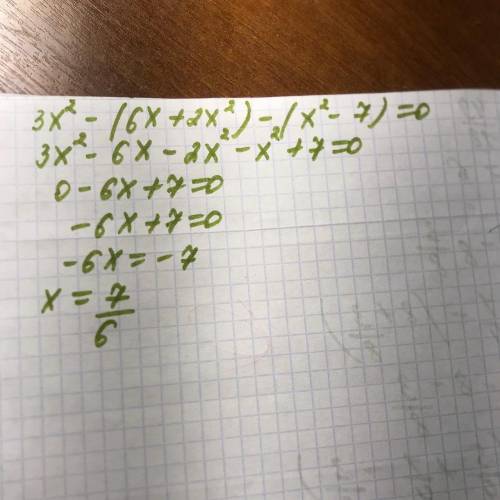 3x² - (6x + 2x²) - (x² - 7) = 0
3x² - 6x - 2x² - x² + 7 = 0
0 - 6x + 7 = 0
- 6x + 7 = 0
- 6x = - 7
x = 7/6